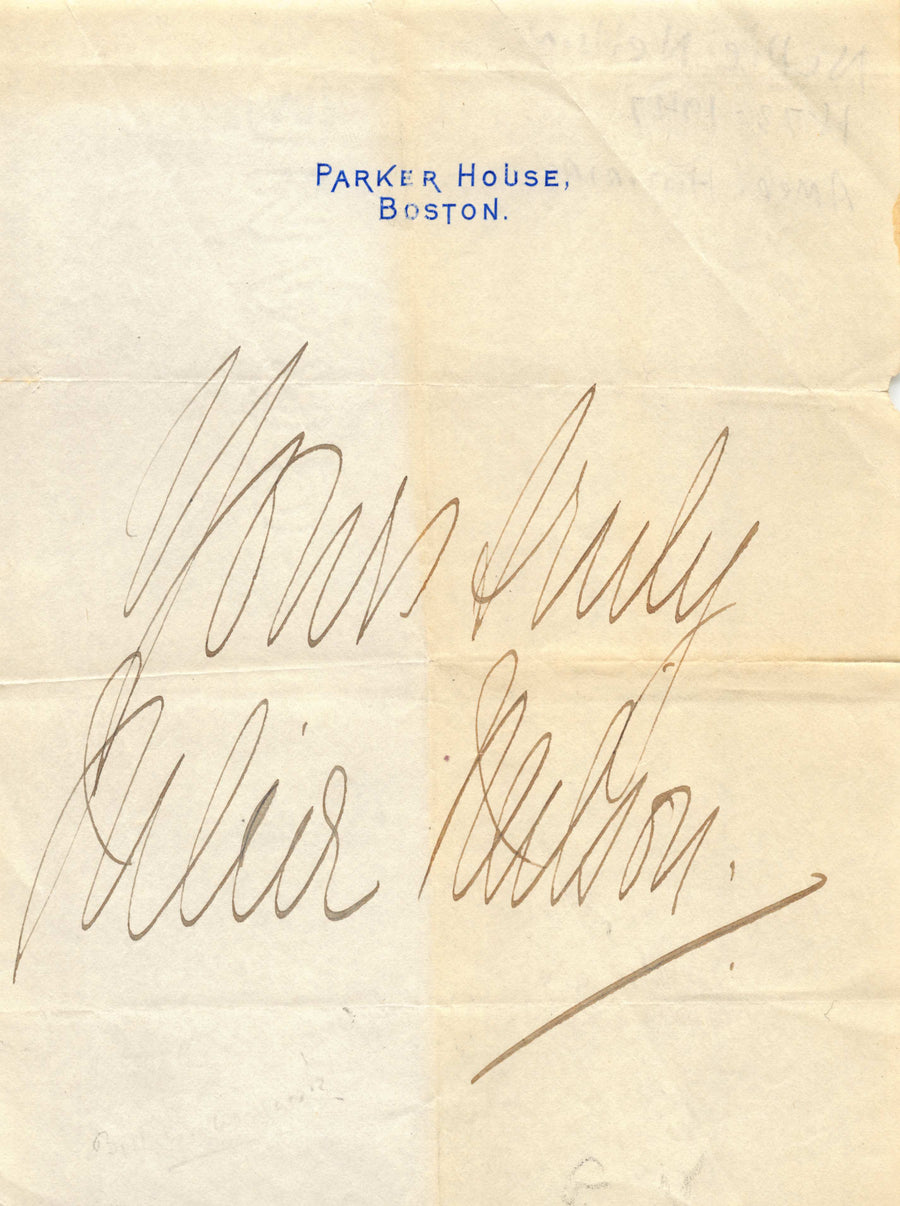 PARKER HOUSE,
BOSTON.
Yours truly
Nellie Neilson.